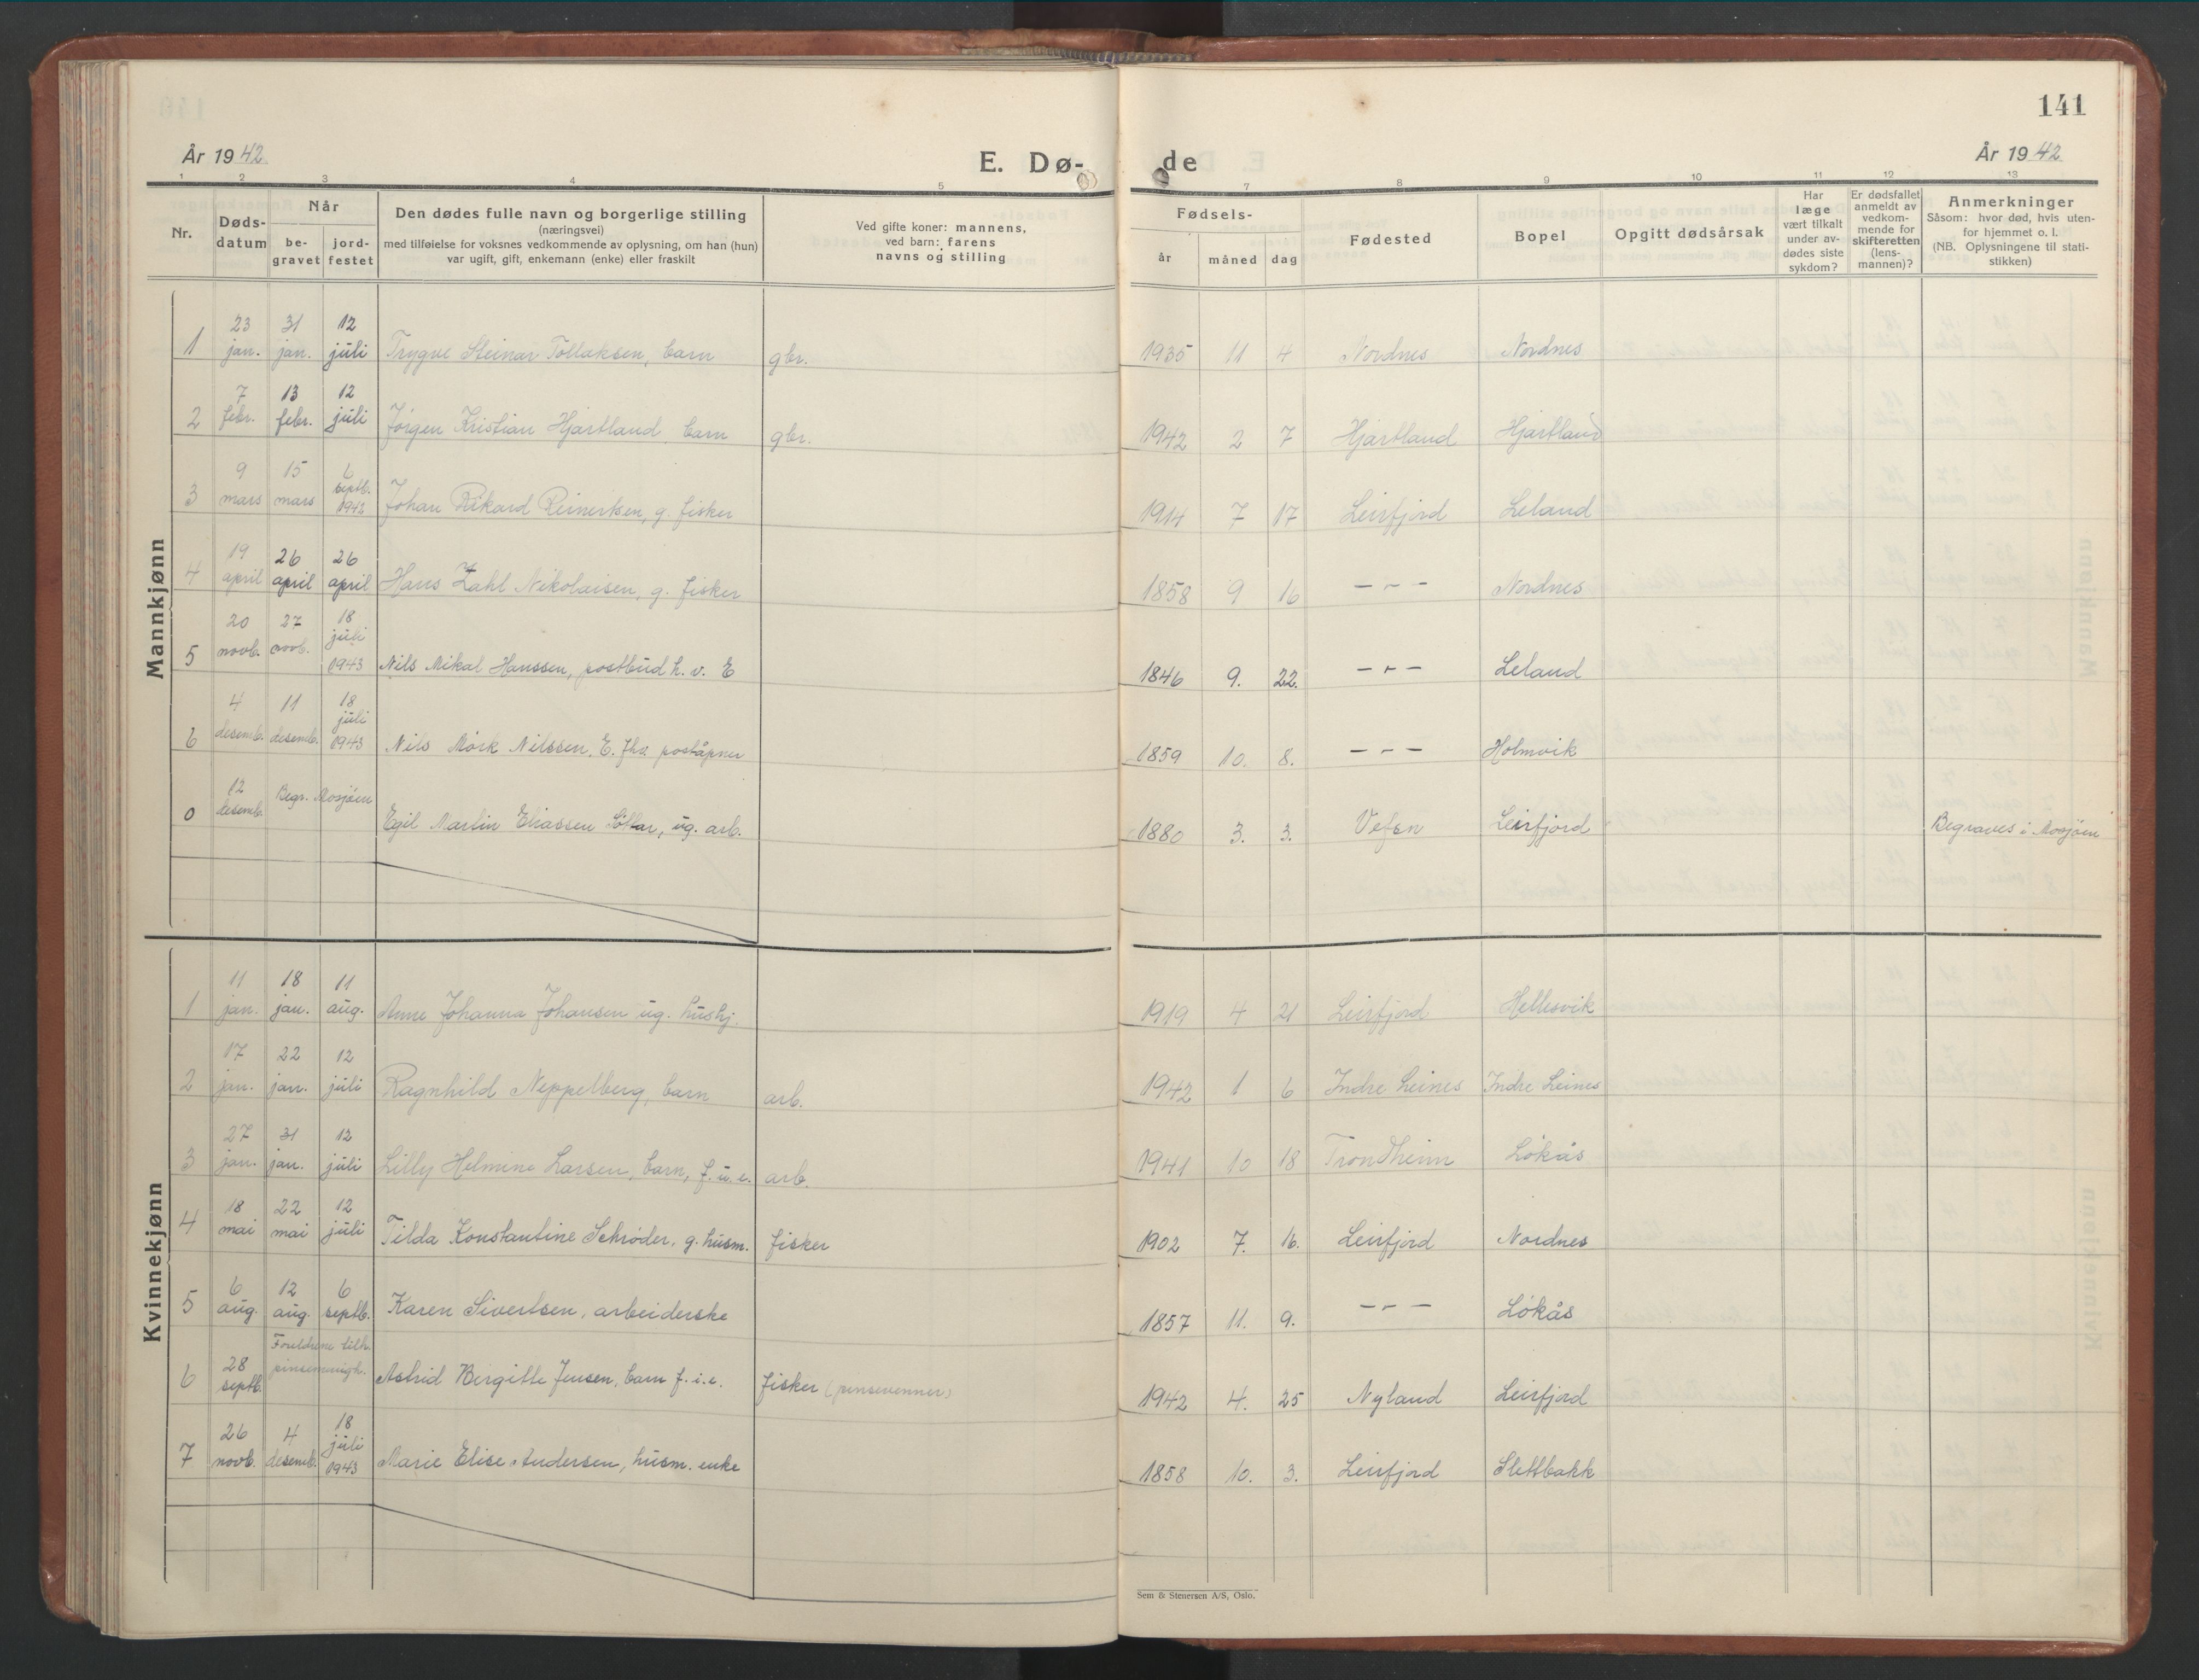 141
År 1942
E. Dø-
de
År 1942
1 2 3 4 5 7 8 9 10 11 12 13
Nr.
Døds-
datum
Når
be-
gravet
jord-
festet
Den dødes fulle navn og borgerlige stilling
(næringsvei)
med tilføielse for voksnes vedkommende av oplysning, om han (hun)
var ugift, gift, enkemann (enke) eller fraskilt
Ved gifte koner: mannens,
ved barn: farens
navns og stilling
Fødsels-
år måned dag
Fødested
Bopel
Opgitt dødsårsak
Har
læge
vært tilkalt
under av-
dødes siste
sykdom?
Er dødsfallet
anmeldt av
vedkom-
mende for
skifteretten
(lens-
mannen)?
Anmerkninger
Såsom: hvor død, hvis uten-
for hjemmet o. l.
(NB. Oplysningene til stati-
stikken)
Mannkjønn
1 23 jan. 31 jan. 12 juli Trygve Steinar Tollaksen, barn gbr. 1935 11 4 Nordnes Nordnes
2 7 febr. 13 febr. 12 juli Jørgen Kristian Hjartland, barn gbr. 1942 2 7 Hjartland Hjartland
3 9 mars 15 mars 6 septb. 1942 Johan Rikard Reinertsen, g. fisker 1914 7 17 Leirfjord Leland
4 19 april 26 april 26 april Hans Zahl Nikolaisen, g. fisker 1858 9 16 — - — Nordnes
5 20 novb. 27 novb. 18 juli 1943 Nils Mikal Hanssen, postbud h. v. E 1846 9. 22. — - — Leland
6 4 desemb. 11 desemb. 18 juli 1943 Nils Mörk Nilssen, E. fhv. poståpner 1859 10. 8. — - — Holmvik
0 12 desemb. Begr. Mosjöen Egil Martin Eliassen Sottar, ug. arb. 1880 3. 3. Vefsn Leirfjord Begraves i Mosjöen
Kvinnekjønn
1 11 jan. 18 jan. 11 aug. Anne Johanna Johansen ug. hushj. 1919 4 21 Leirfjord Hellesvik
2 17 jan. 22 jan. 12 juli Ragnhild Neppelberg, barn arb. 1942 1 6 Indre Leines Indre Leines
3 27 jan. 31 jan. 12 juli Lilly Helmine Larsen, barn, f. u. e. arb. 1941 10 18 Trondheim Lökås
4 18 mai 22 mai 12 juli Tilda Konstantine Schröder, g. husm. fisker 1902 7. 16. Leirfjord Nordnes
5 6 aug. 12 aug. 6 septb. Karen Sivertsen, arbeiderske 1857 11. 9. — - — Lökås
6 28 septb. Foreldrene tilh. pinsemenigh. Astrid Birgitte Jensen, barn f. i. e. fisker (pinsevenner) 1942 4. 25 Nyland Leirfjord
7 26 novb. 4 desemb. 18 juli 1943 Marie Elise Andersen, husm. enke 1858 10. 3. Leirfjord Slettbakk
Sem & Stenersen A/S, Oslo.